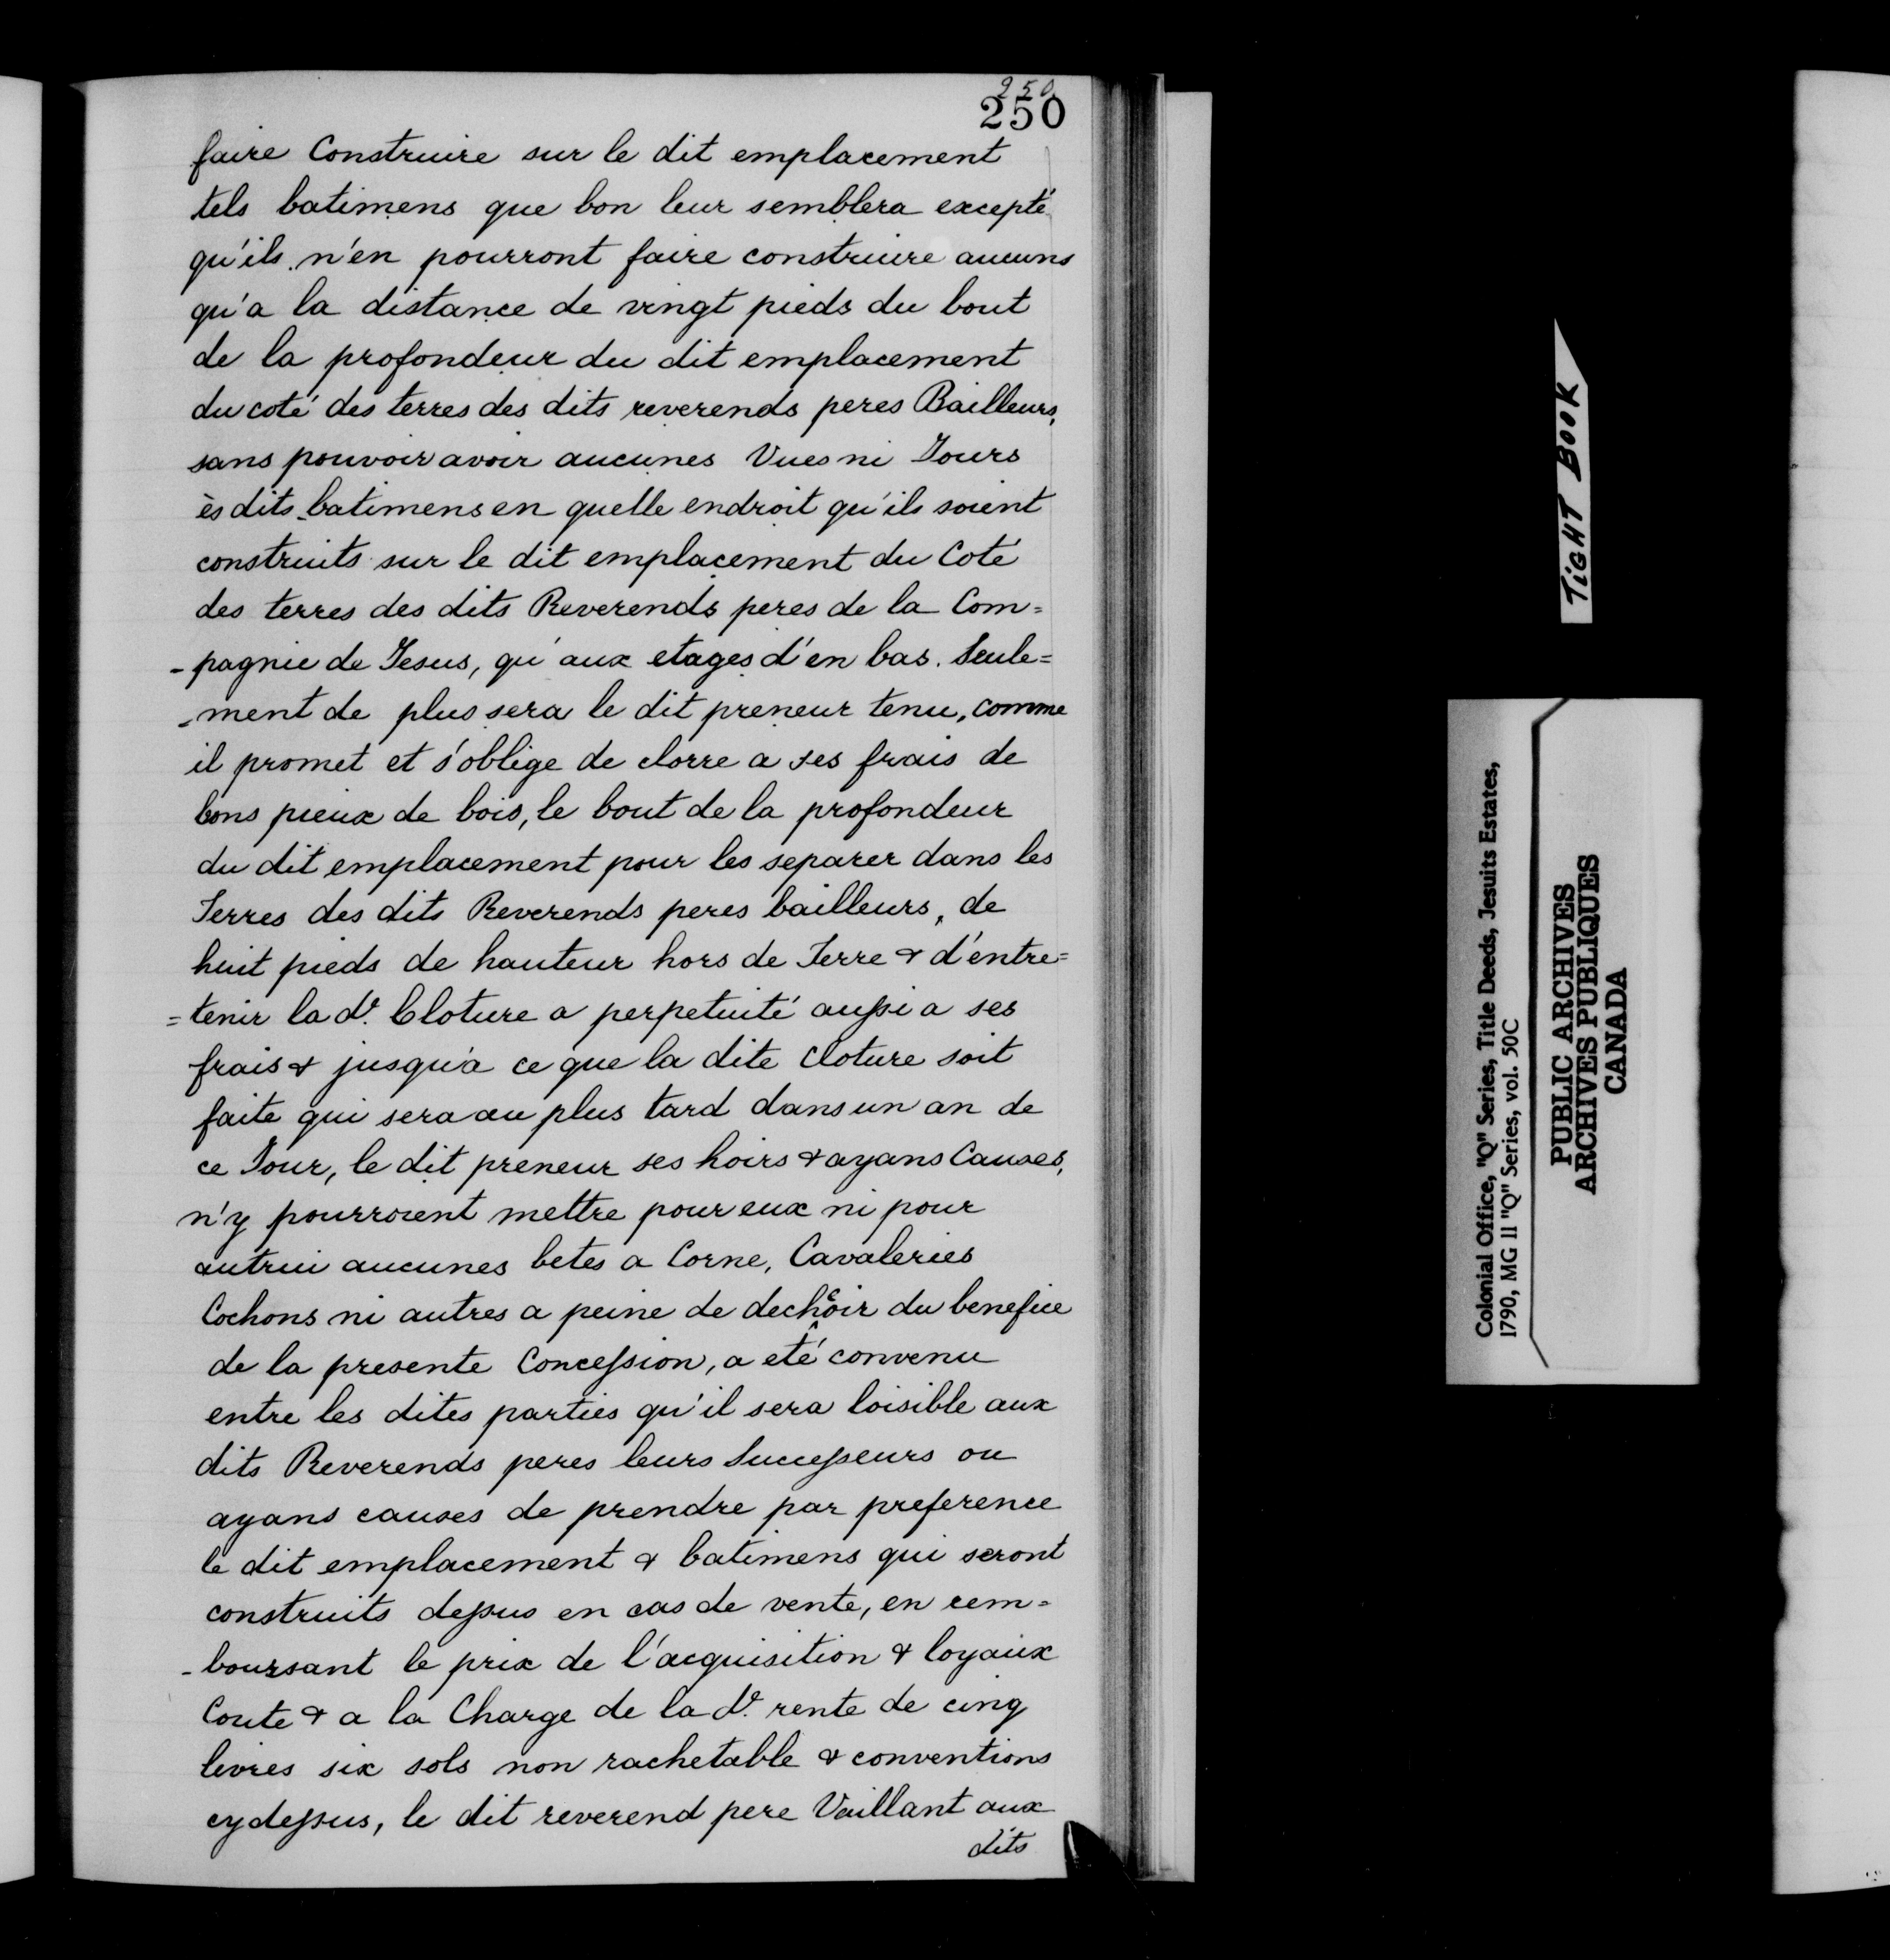 250
250
faire Construire sur le dit emplacement
tels batimens que bon leur semblera excepté
qu'ils n'en pourront faire construire aucuns
qu'a la distance de vingt pieds du bout
de la profondeur du dit emplacement
du coté des terres des dits reverends peres Bailleurs,
sans pouvoir avoir aucunes Vues ni Jours
ès dits batimens en quelle endroit qu'ils soient
construits sur le dit emplacement du Coté
des terres des dits Reverends peres de la Com=
-pagnie de Jesus, qu'aux etages d'en bas. Seule=
-ment de plus sera le dit preneur tenu, comme
il promet et s'oblige de clorre a ses frais de
bons pieux de bois, le bout de la profondeur
du dit emplacement pour les separer dans les
Terres des dits Reverends peres bailleurs, de
huit pieds de hauteur hors de Terre & d'entre=
=tenir la de. Cloture a perpetuité aussi a ses
frais & jusqu'a ce que la dite cloture soit
faite qui sera au plus tard dans un an de
ce Jour, le dit preneur ses hoirs & ayans Causes,
n'y pourroient mettre pour eux ni pour
autrui aucunes betes a Corne, Cavaleries
Cochons ni autres a peine de decheoir du benefice
de la presente Concession, a eté convenu
entre les dites parties qu'il sera loisible aux
dits Reverends peres leurs Successeurs ou
ayans causes de prendre par preference
le dit emplacement & batimens qui seront
construits dessus en cas de vente, en rem=
-boursant le prix de l'acquisition & loyaux
Coute & a la Charge de la de. rente de cinq
livres six sols non rachetable & conventions
cydessus, le dit reverend pere Vaillant aux
dits
TIGHT BOOK
Colonial Office, "Q" Series, Title Deeds, Jesuits Estates,
1790, MG 11 "Q" Series, vol. 50C
PUBLIC ARCHIVES
ARCHIVES PUBLIQUES
CANADA